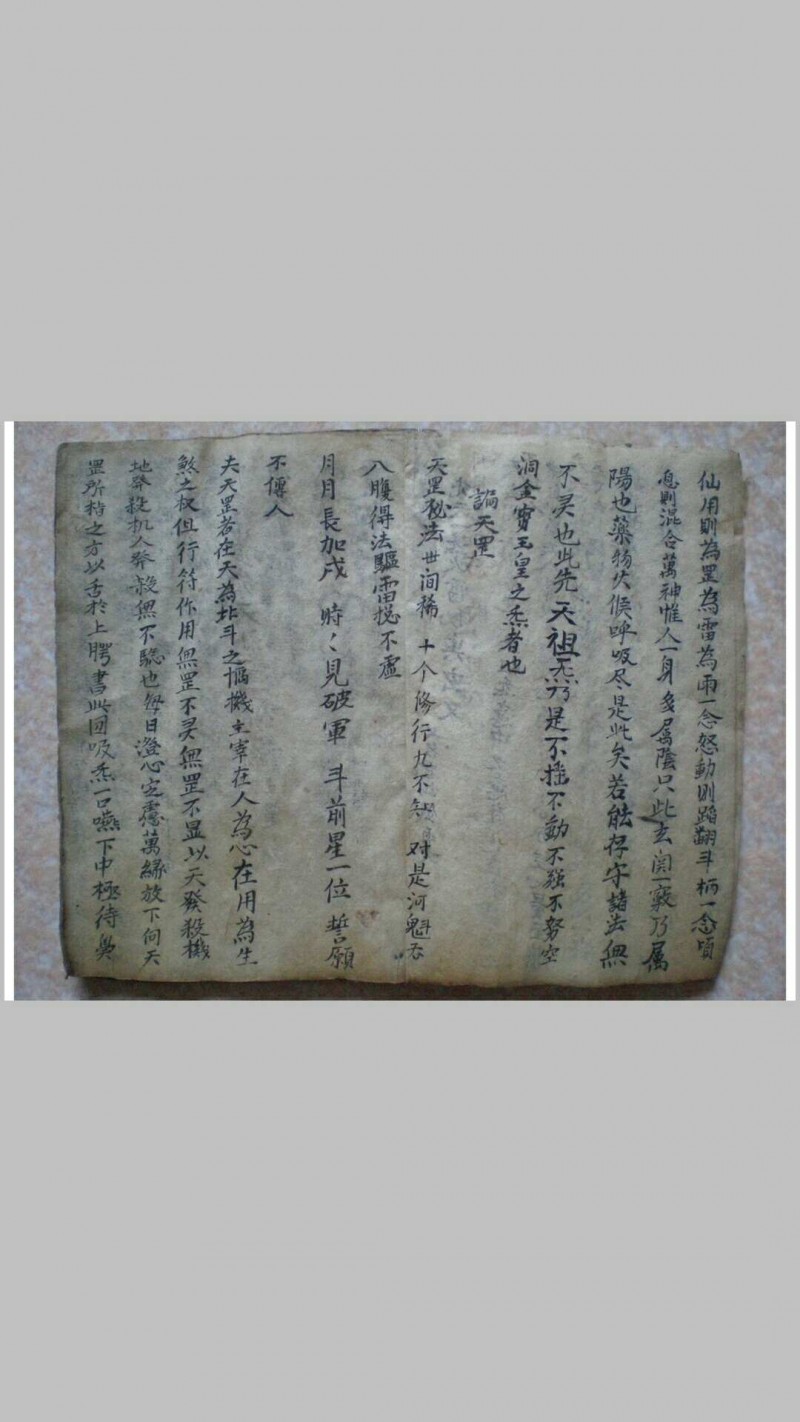 仙用則為罡為雷為雨一念怒動則踏翻斗柄一念頃
息則混合萬神惟人一身多属陰只此玄関一竅乃属
陽也藥物火候呼吸尽是此矣若能存守諸法無
不灵也此先天祖炁乃是不摇不動不強不努空
洞金寶玉皇之炁者也
論天罡
天罡秘法世间稀十个修行九不知对是河魁吞
入腹得法驅雷揔不虚
月月長加戌時々見破軍斗前星一位誓願
不傳人
夫天罡者在天為北斗之樞機主宰在人為心在用為生
煞之权但行符作用無罡不灵無罡不显以天發殺機
地發殺机人發殺無不驗也每日澄心定慮萬緣放下向天
罡所指之方以舌於上腭書此回吸炁一口嚥下中極待與